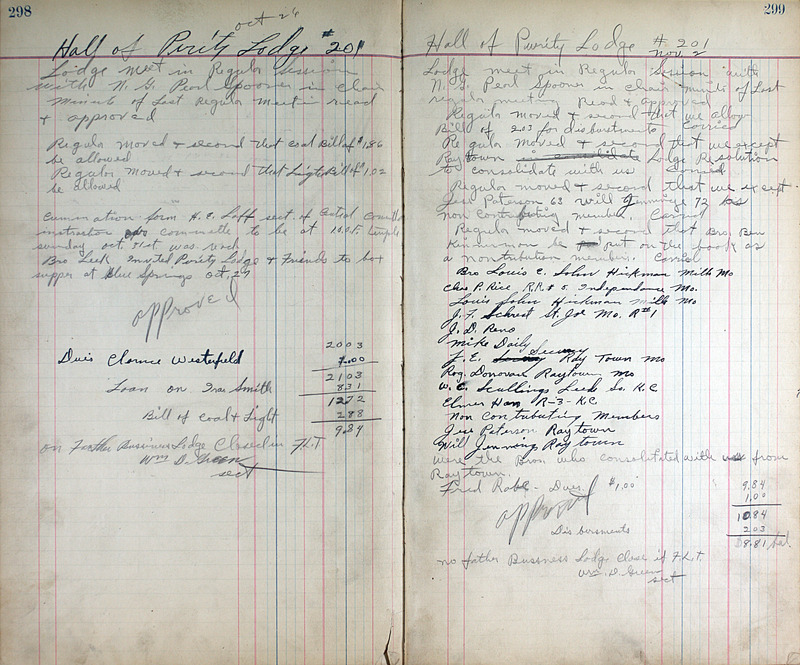 298
oct 26
Hall of Purity Lodge #201
Lodge meet in Regular Session
with N. G. Pearl Spooner in Chair
Minuts of Last Regular Meetin read
& approved
Regular Moved & second that coal Bill of $1.86
be allowed
Regular Moved & second that Light Bill of $1.02
be allowed
form H. E. Laff sect. of
instructor committe to be at I.O.O.F. temple
sunday oct 31st was read
Bro Leek Invited Purity Lodge & Friends to box
supper at Blue Springs Oct 29
approved
2003
Dues Clarnce Westerfeld 1.00
2103
Loan on Ira Smith 831
1272
Bill of Coal & Light 288
9.84
on Further Business Lodge Closed in F.L.T
Wm D. Green
sect
299
Hall of Purity Lodge #201
Nov. 2
Lodge meet in Regular Session with
N. G. Pearl Spooner in chair minuts of Last
regular meeting Read & approved
Regular Moved & second that we allow
Bill of 2.03 for disburstments Carried
Regular moved & second that we except
Raytown Lodge Resolution
to consolidate with us Carried
Regular moved & second that we except
Jess Peterson 63 Will Jennings 72 as
non contributing member. Carried
Regular moved & second that Bro. Ben
be put on the book as
a noncontributing member. Carried
Bro Louis C. John Hickman Mills Mo
Chas P. Rice, R.R. # 5. Independence Mo.
Louis John Hickman Mills Mo
J. F. Schrest St. Joe Mo. R#1
J. D. Reno
Mike Daily
J. E. Ray Town Mo
Rog. Donovan Raytown Mo
W. C. Scullings Leeds So. K.C
Elmer Han R-3-K.C
Non Contributing Members
Jess Peterson Raytown
Will Jenning Raytown
were the Bros who consolidated with us from
Raytown
Fred Rabe - Dues $1.00
9.84
1.00
approved
1084
Disborsments 203
8.81 bal.
no father Business Lodg Close if F.L.T.
Wm. D. Green
sect